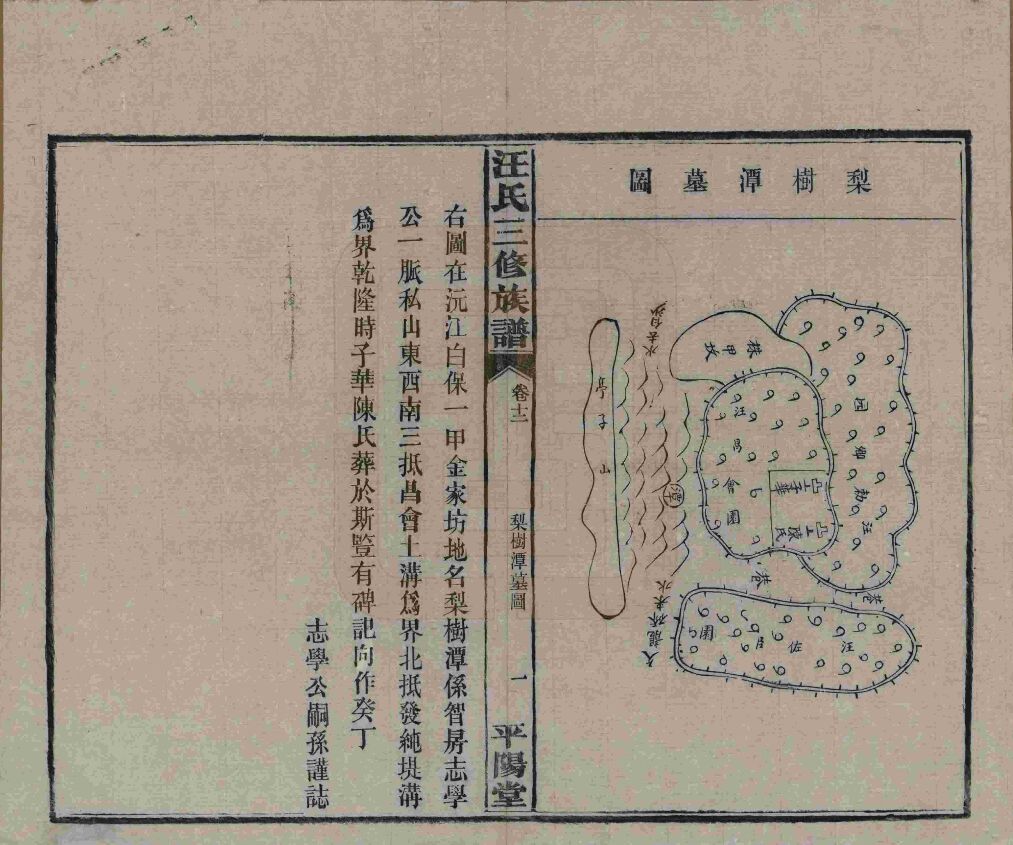 梨樹潭墓圖
株甲坎
汪昌會園
子華
陳氏
園
汪
巷
巷
汪佐臣園
潭
亭子山
汪氏三修族譜
卷十二
梨樹潭墓圖
一
平陽堂
右圖在沅江白保一甲金家坊地名梨樹潭係智昇志學
公一脈私山東西南三抵昌會土溝爲界北抵發純堤溝
爲界乾隆時子華陳氏葬於斯豎有碑記向作癸丁
志學公嗣孫謹誌